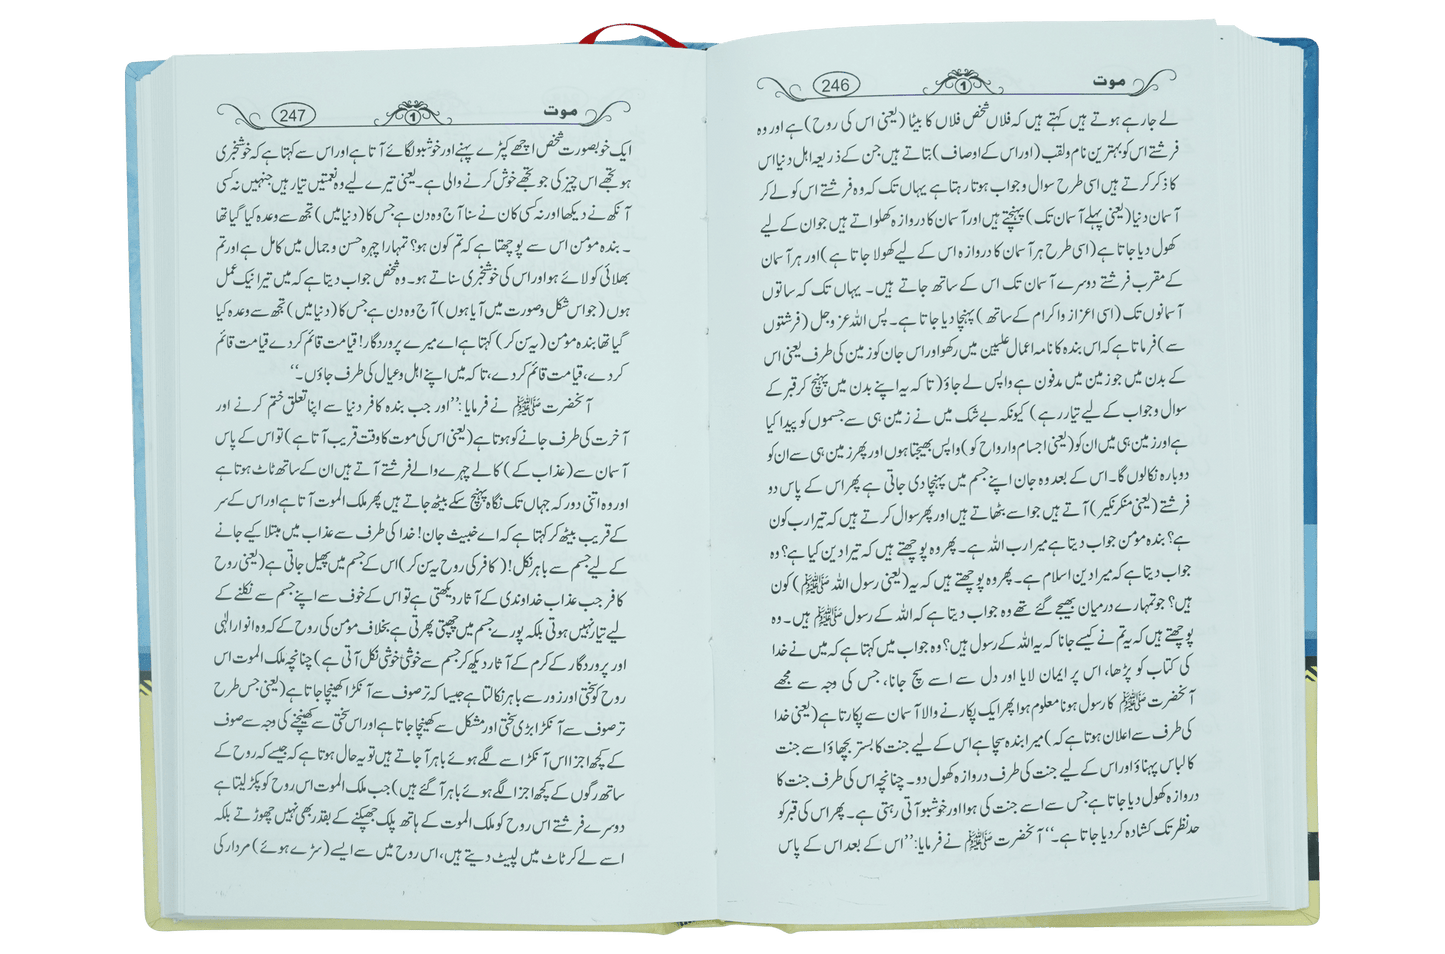 موت 1 246
لے جارہے ہوتے ہیں کہتے ہیں کہ فلاں شخص فلاں کا بیٹا (یعنی اس کی روح) ہے اور وہ
فرشتے اس کو بہترین نام ولقب (اور اس کے اوصاف) بتاتے ہیں جن کے ذریعہ اہل دنیا اس
کا ذکر کرتے ہیں اسی طرح سوال و جواب ہوتا رہتا ہے یہاں تک کہ وہ فرشتے اس کو لے کر
آسمان دنیا (یعنی پہلے آسمان تک) پہنچتے ہیں اور آسمان کا دروازہ کھلواتے ہیں جو ان کے لیے
کھول دیا جاتا ہے (اسی طرح ہر آسمان کا دروازہ اس کے لیے کھولا جاتا ہے) اور ہر آسمان
کے مقرب فرشتے دوسرے آسمان تک اس کے ساتھ جاتے ہیں۔ یہاں تک کہ ساتوں
آسمانوں تک (اسی اعزاز واکرام کے ساتھ) پہنچا دیا جاتا ہے۔ پس اللہ عزوجل (فرشتوں
سے) فرماتا ہے کہ اس بندہ کا نامہ اعمال علیین میں رکھو اور اس جان کو زمین کی طرف یعنی اس
کے بدن میں جو زمین میں مدفون ہے واپس لے جاؤ (تاکہ یہ اپنے بدن میں پہنچ کر قبر کے
سوال و جواب کے لیے تیار رہے) کیونکہ بے شک میں نے زمین ہی سے جسموں کو پیدا کیا
ہے اور زمین ہی میں ان کو (یعنی اجسام وارواح کو) واپس بھیجتا ہوں اور پھر زمین ہی سے ان کو
دوبارہ نکالوں گا۔ اس کے بعد وہ جان اپنے جسم میں پہنچا دی جاتی ہے پھر اس کے پاس دو
فرشتے (یعنی منکر نکیر) آتے ہیں جو اسے بٹھاتے ہیں اور پھر سوال کرتے ہیں کہ تیرا رب کون
ہے؟ بندہ مؤمن جواب دیتا ہے میرا رب اللہ ہے۔ پھر وہ پوچھتے ہیں کہ تیرا دین کیا ہے؟ وہ
جواب دیتا ہے کہ میرا دین اسلام ہے۔ پھر وہ پوچھتے ہیں کہ یہ (یعنی رسول اللہ ﷺ) کون
ہیں؟ جو تمہارے درمیان بھیجے گئے تھے وہ جواب دیتا ہے کہ اللہ کے رسول ﷺ ہیں۔ وہ
پوچھتے ہیں کہ یہ تم نے کیسے جانا کہ یہ اللہ کے رسول ہیں؟ وہ جواب میں کہتا ہے کہ میں نے خدا
کی کتاب کو پڑھا، اس پر ایمان لایا اور دل سے اسے سچ جانا، جس کی وجہ سے مجھے
آنحضرت ﷺ کا رسول ہونا معلوم ہوا پھر ایک پکارنے والا آسمان سے پکارتا ہے (یعنی خدا
کی طرف سے اعلان ہوتا ہے کہ) میرا بندہ سچا ہے اس کے لیے جنت کا بستر بچھاؤ اسے جنت
کا لباس پہناؤ اور اس کے لیے جنت کی طرف دروازہ کھول دو۔ چنانچہ اس کی طرف جنت کا
دروازہ کھول دیا جاتا ہے جس سے اسے جنت کی ہوا اور خوشبو آتی رہتی ہے۔ پھر اس کی قبر کو
حد نظر تک کشادہ کر دیا جاتا ہے۔“ آنحضرت ﷺ نے فرمایا: ”اس کے بعد اس کے پاس
موت 1 247
ایک خوبصورت شخص اچھے کپڑے پہنے اور خوشبو لگائے آتا ہے اور اس سے کہتا ہے کہ خوشخبری
ہو تجھے اس چیز کی جو تجھے خوش کرنے والی ہے۔ یعنی تیرے لیے وہ نعمتیں تیار ہیں جنہیں نہ کسی
آنکھ نے دیکھا اور نہ کسی کان نے سنا آج وہ دن ہے جس کا (دنیا میں) تجھ سے وعدہ کیا گیا تھا
۔ بندہ مؤمن اس سے پوچھتا ہے کہ تم کون ہو؟ تمہارا چہرہ حسن و جمال میں کامل ہے اور تم
بھلائی کو لائے ہو اور اس کی خوشخبری سناتے ہو۔ وہ شخص جواب دیتا ہے کہ میں تیرا نیک عمل
ہوں (جو اس شکل وصورت میں آیا ہوں) آج وہ دن ہے جس کا (دنیا میں) تجھ سے وعدہ کیا
گیا تھا بندہ مؤمن (یہ سن کر) کہتا ہے اے میرے پروردگار! قیامت قائم کر دے قیامت قائم
کر دے، قیامت قائم کر دے، تاکہ میں اپنے اہل وعیال کی طرف جاؤں۔“
آنحضرت ﷺ نے فرمایا: ”اور جب بندہ کافر دنیا سے اپنا تعلق ختم کرنے اور
آخرت کی طرف جانے کو ہوتا ہے (یعنی اس کی موت کا وقت قریب آتا ہے) تو اس کے پاس
آسمان سے (عذاب کے) کالے چہرے والے فرشتے آتے ہیں ان کے ساتھ ٹاٹ ہوتا ہے
اور وہ اتنی دور کہ جہاں تک نگاہ پہنچ سکے بیٹھ جاتے ہیں پھر ملک الموت آتا ہے اور اس کے سر
کے قریب بیٹھ کر کہتا ہے کہ اے خبیث جان! خدا کی طرف سے عذاب میں مبتلا کیے جانے
کے لیے جسم سے باہر نکل! (کافر کی روح یہ سن کر) اس کے جسم میں پھیل جاتی ہے (یعنی روح
کافر جب عذاب خداوندی کے آثار دیکھتی ہے تو اس کے خوف سے اپنے جسم سے نکلنے کے
لیے تیار نہیں ہوتی بلکہ پورے جسم میں چھپتی پھرتی ہے بخلاف مؤمن کی روح کے کہ وہ انوار الٰہی
اور پروردگار کے کرم کے آثار دیکھ کر جسم سے خوشی خوشی نکل آتی ہے) چنانچہ ملک الموت اس
روح کو سختی اور زور سے باہر نکالتا ہے جیسا کہ تر صوف سے آنکڑا کھینچا جاتا ہے (یعنی جس طرح
تر صوف سے آنکڑا بڑی سختی اور مشکل سے کھینچا جاتا ہے اور اس سختی سے کھینچنے کی وجہ سے صوف
کے کچھ اجزا اس آنکڑا سے لگے ہوئے باہر آ جاتے ہیں تو یہ حال ہوتا ہے کہ جیسے کہ روح کے
ساتھ رگوں کے کچھ اجزا لگے ہوئے باہر آ گئے ہیں) جب ملک الموت اس روح کو پکڑ لیتا ہے
دوسرے فرشتے اس روح کو ملک الموت کے ہاتھ پلک جھپکنے کے بقدر بھی نہیں چھوڑتے بلکہ
اسے لے کر ٹاٹ میں لپیٹ دیتے ہیں، اس روح میں سے ایسے (سڑے ہوئے) مردار کی